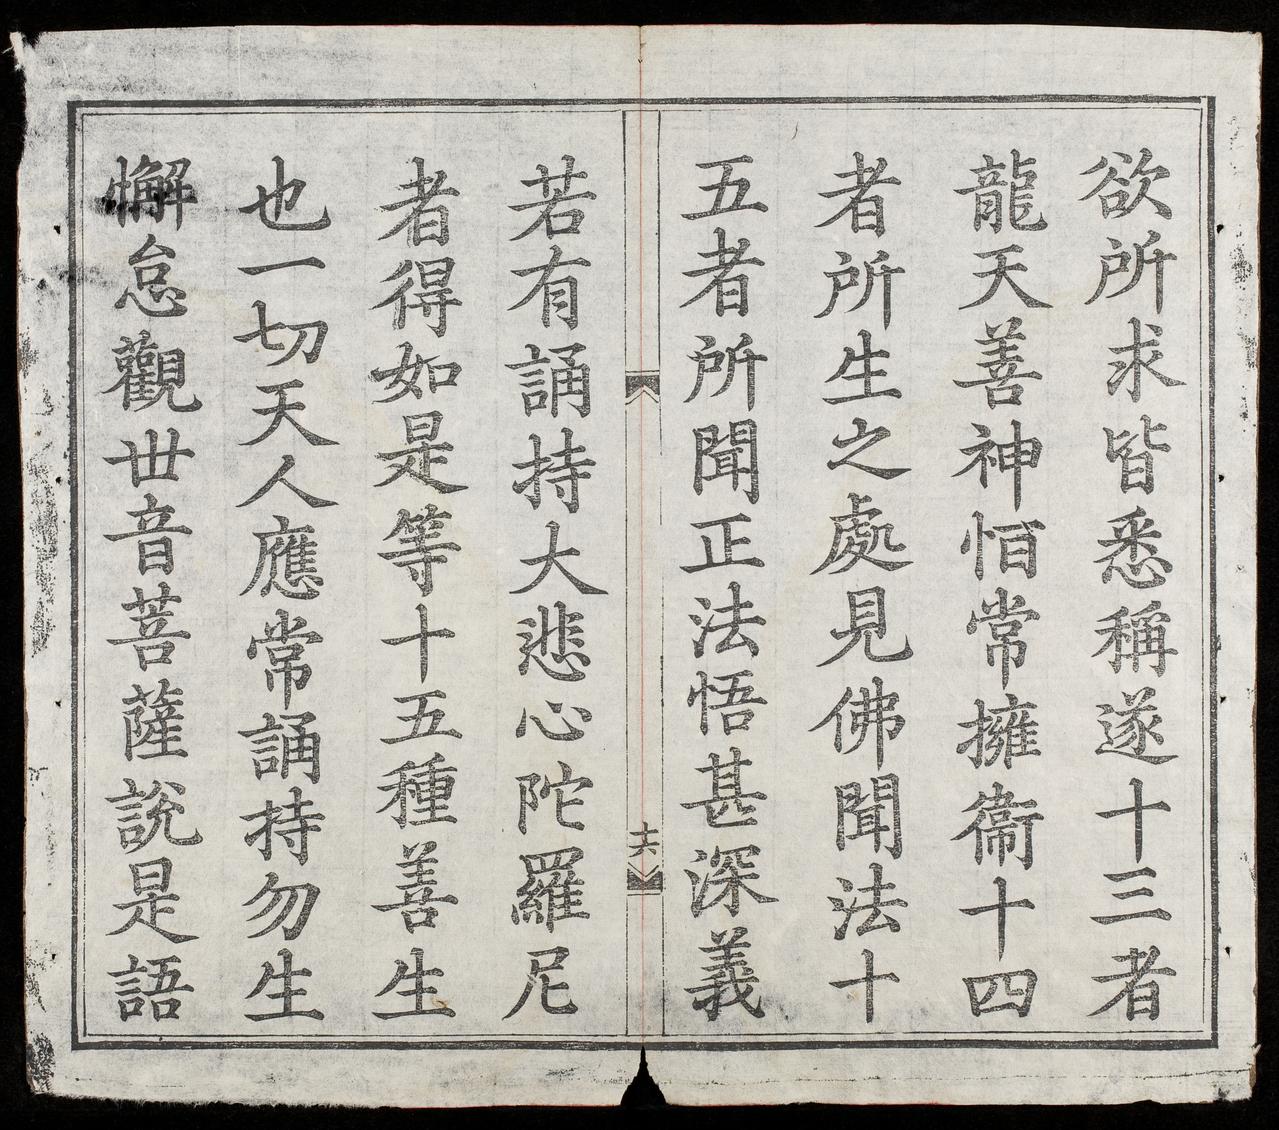 欲所求皆悉稱遂十三者
龍天善神恒常擁衞十四
者所生之處見佛聞法十
五者所聞正法悟甚深義
十六
若有誦持大悲心陀羅尼
者得如是等十五種善生
也一切天人應常誦持勿生
懈怠觀世音菩薩說是語